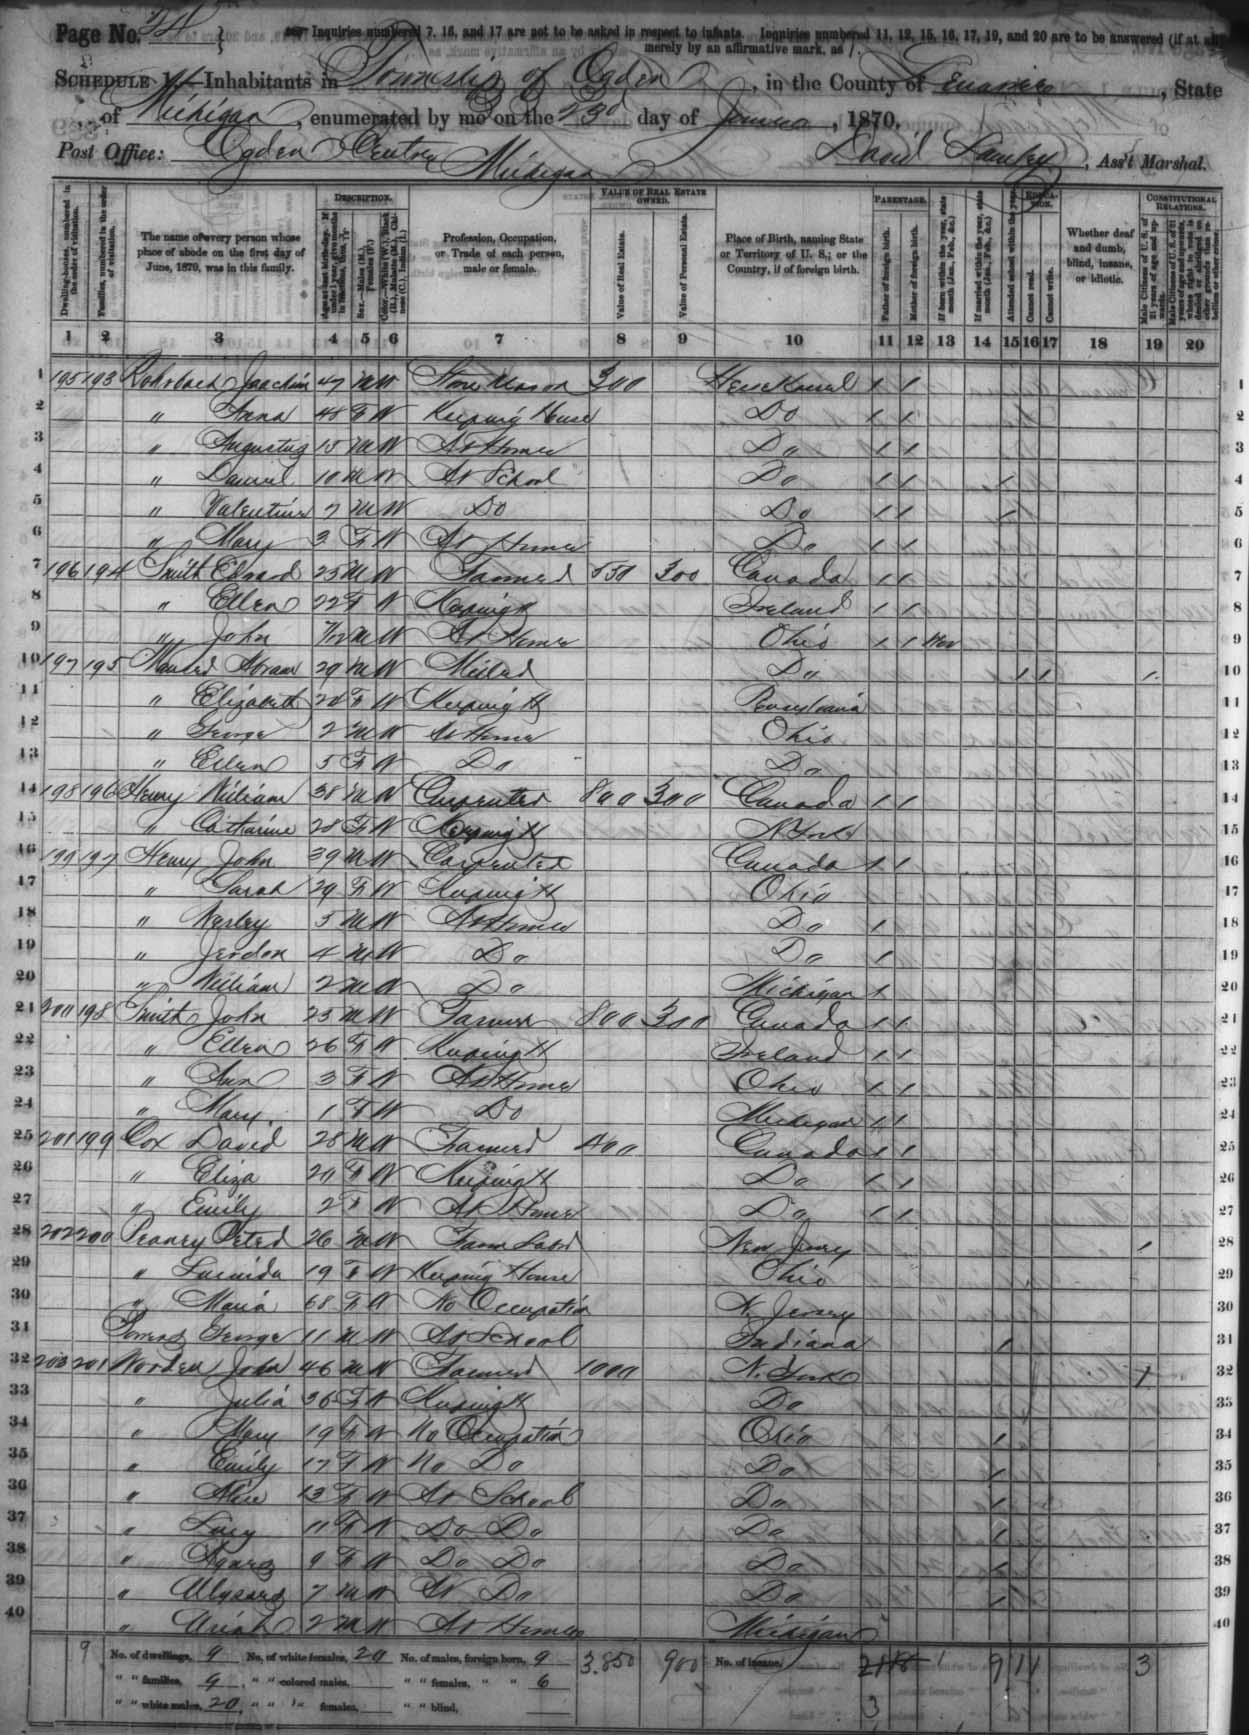 Page No. 24 } Inquiries numbered 7, 16, and 17 are not to be asked in respect to infants. Inquiries numbered 11, 12, 15, 16, 17, 19, and 20 are to be answered (if at all)
merely by an affirmative mark, as /.
SCHEDULE 1.—Inhabitants in Township of Ogden, in the County of Lenawee, State
of Michigan, enumerated by me on the 23d day of June, 1870.
Post Office: Ogden Centre Michigan David, Ass't Marshal.
Dwelling-houses, numbered in the order of visitation.
Families, numbered in the order of visitation.
The name of every person whose place of abode on the first day of June, 1870, was in this family.
DESCRIPTION.
Age at last birth-day. If under 1 year, give months in fractions, thus, 3/12
Sex.—Males (M.), Females (F.)
Color.—White (W.), Black (B.), Mulatto (M.), Chinese (C.), Indian (I.)
Profession, Occupation, or Trade of each person, male or female.
VALUE OF REAL ESTATE OWNED.
Value of Real Estate.
Value of Personal Estate.
Place of Birth, naming State or Territory of U. S.; or the Country, if of foreign birth.
PARENTAGE.
Father of foreign birth.
Mother of foreign birth.
If born within the year, state month (Jan., Feb., &c.)
If married within the year, state month (Jan., Feb., &c.)
Attended school within the year.
EDUCATION.
Cannot read.
Cannot write.
Whether deaf and dumb, blind, insane, or idiotic.
CONSTITUTIONAL RELATIONS.
Male Citizens of U. S. of 21 years of age and upwards.
1 2 3 4 5 6 7 8 9 10 11 12 13 14 15 16 17 18 19 20
1 195 193 Rohrbach Joachim 47 M W Stone Mason 300 Hesse Kassel / / 1
2 " Anna 48 F W Keeping House Do / / 2
3 " Augustus 15 M W At Home Do / / 3
4 " Daniel 10 M W At School Do / / / 4
5 " Valentine 7 M W Do Do / / / 5
6 " Mary 3 F W At Home Do / / 6
7 196 194 Smith Edward 25 M W Farmer 550 300 Canada / / 7
8 " Ellen 22 F W Keeping H Ireland / / 8
9 " John 7/12 M W At Home Ohio / / Nov 9
10 197 195 Abram 29 M W Do / / / 10
11 " Elizabeth 24 F W Keeping H Pensylvania 11
12 " George 2 M W At Home Ohio 12
13 " Ellen 5 F W Do Do 13
14 198 196 Henry William 38 M W Carpenter 800 300 Canada / / 14
15 " Catharine 28 F W Keeping H N York 15
16 199 197 Henry John 39 M W Carpenter Canada / / 16
17 " Sarah 29 F W Keeping H Ohio 17
18 " Wesley 5 M W At Home Do / 18
19 " Jerdon 4 M W Do Do / 19
20 " William 2 M W Do Michigan / 20
21 200 198 Smith John 23 M W Farmer 800 300 Canada / / 21
22 " Ellen 26 F W Keeping H Ireland / / 22
23 " Ann 3 F W At Home Ohio / / 23
24 " Mary 1 F W Do Michigan / / 24
25 201 199 Cox David 28 M W Farmer 400 Canada / / 25
26 " Eliza 20 F W Keeping H Do / / 26
27 " Emily 2 F W At Home Do / / 27
28 202 200 Peter 26 M W Farm Labor New Jersey / 28
29 " Lucinda 19 F W Keeping House Ohio 29
30 " Maria 68 F W No Occupation N. Jersey 30
31 George 11 M W At School Indiana / 31
32 203 201 Worden John 46 M W Farmer 1000 N. York / 32
33 " Julia 36 F W Keeping H Do 33
34 " Mary 19 F W No Occupation Ohio / 34
35 " Emily 17 F W No Do Do / 35
36 " Alice 13 F W At School Do / 36
37 " Lucy 11 F W Do Do Do / 37
38 " 9 F W Do Do Do / 38
39 " 7 M W At Do Do / 39
40 " Uriah 2 M W At Home Michigan 40
9 No. of dwellings, 9 No. of white females, 20 No. of males, foreign born, 9 3.850 900 No. of insane, 9 1 1 3
" " families, 9 " " colored males, " " females, " " 6
" " white males, 20 " " " females, " " blind, 3